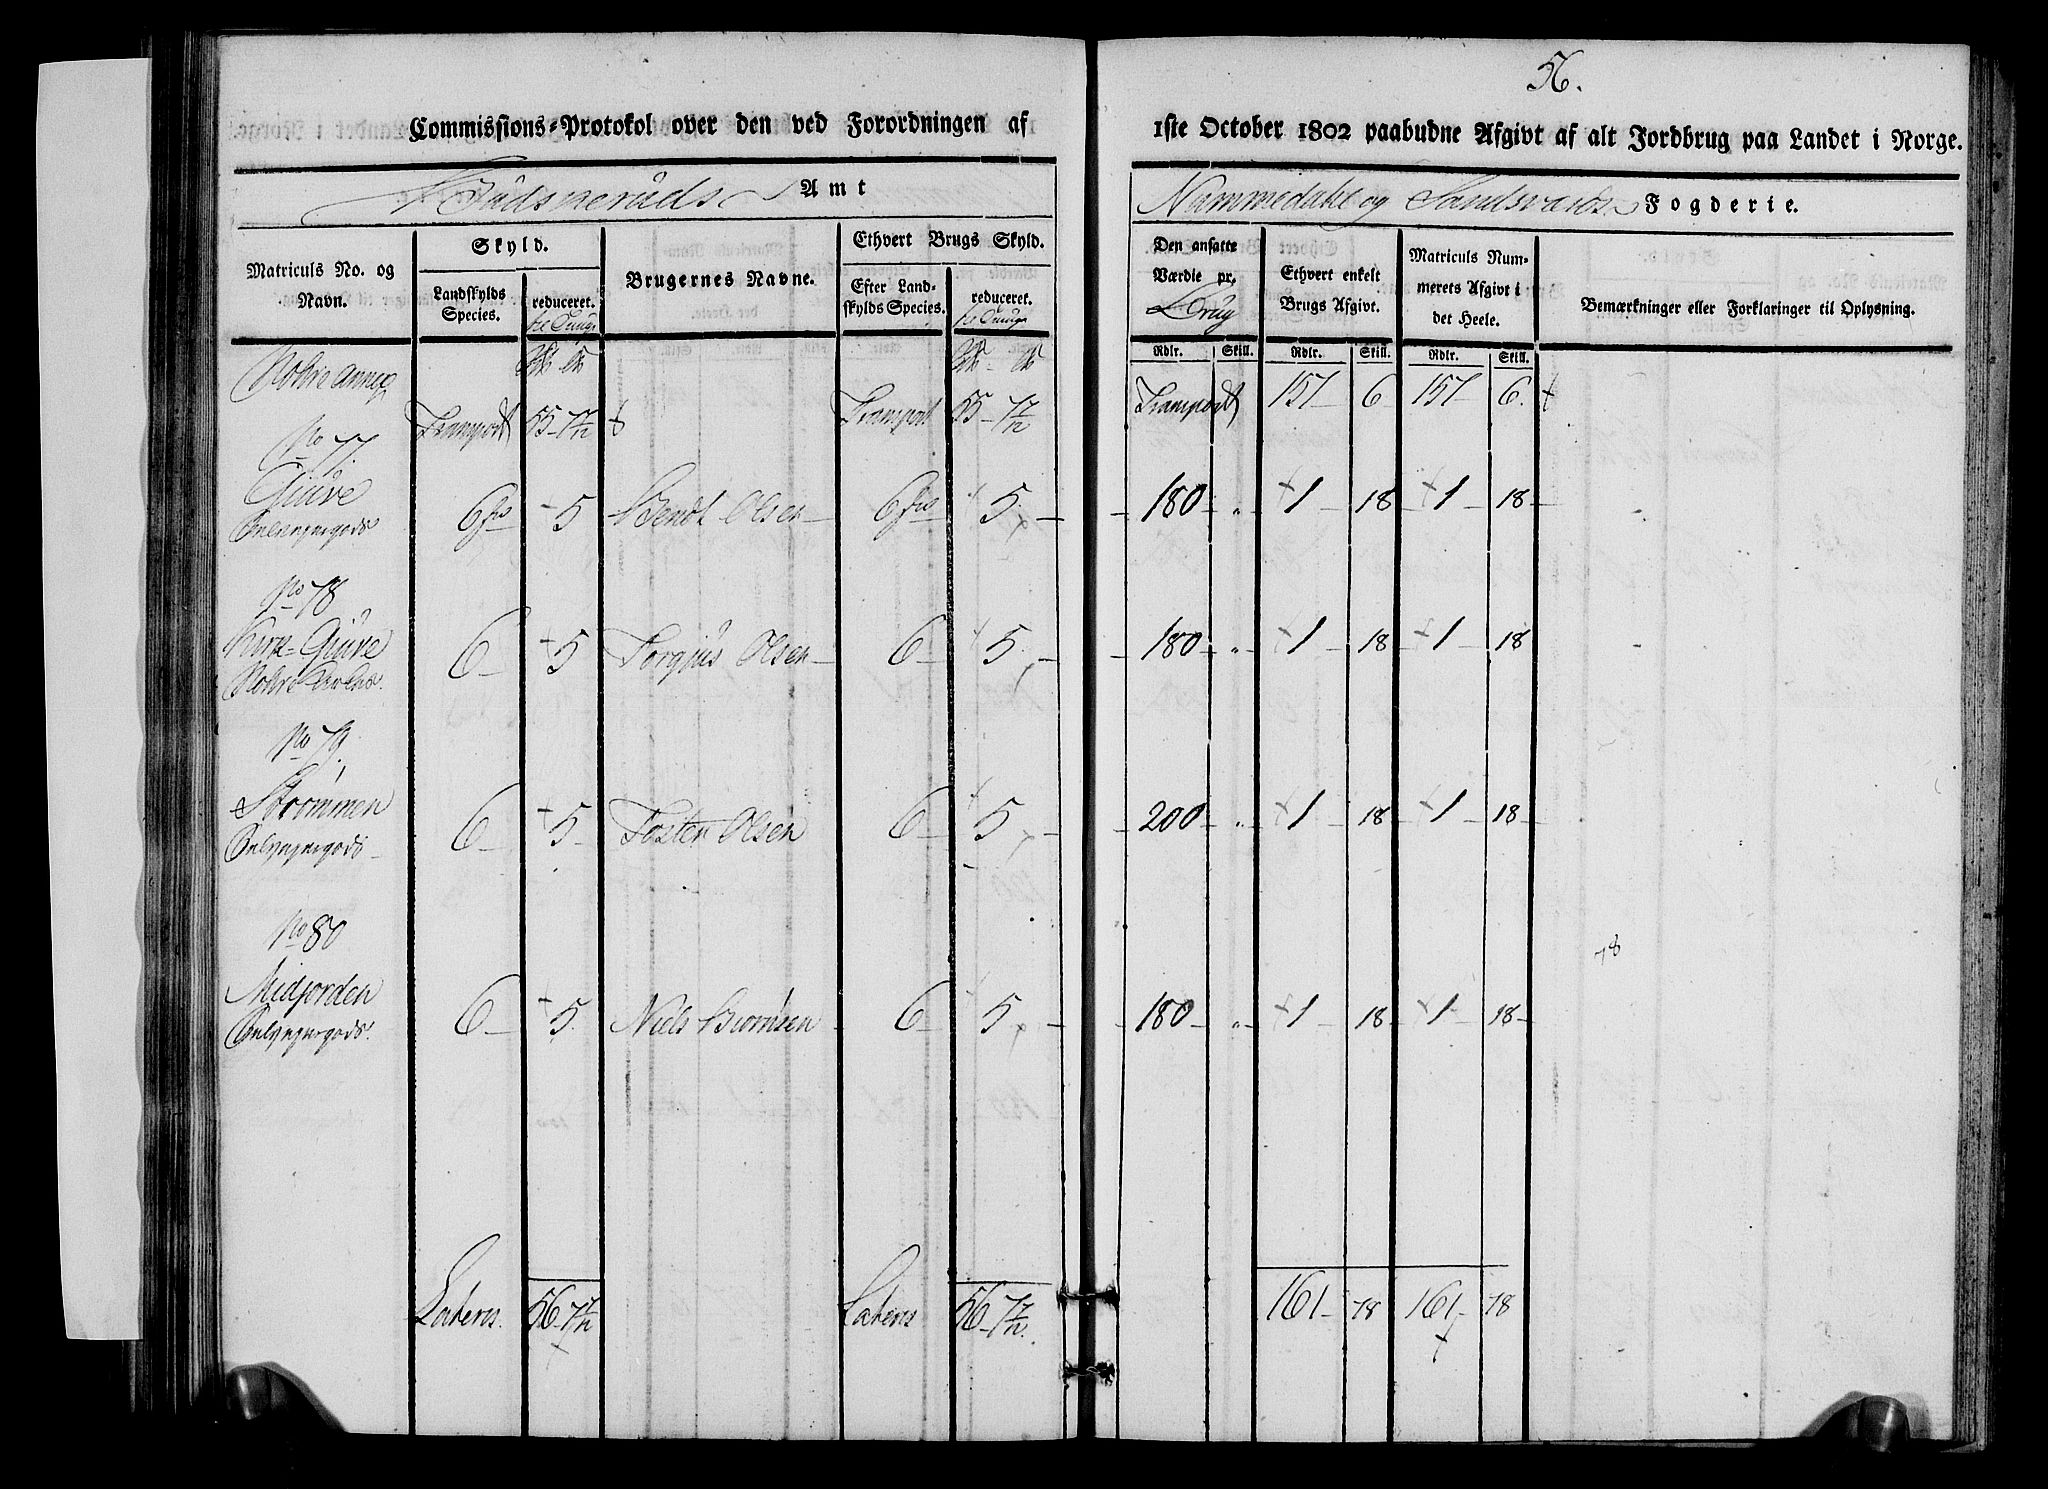 56.
Commissions-Protokol over den ved Forordningen af 1ste October 1802 paabudne Afgivt af alt Jordbrug paa Landet i Norge.
Budsneruds Amt Nummedahl og Sandsværds Fogderie.
Matriculs No. og Navn. Skyld. Brugernes Navne. Ethvert Brugs Skyld. Den ansatte Værdie pr. Brug Ethvert enkelt Brugs Afgivt. Matriculs Nummerets Afgivt i det Heele. Bemærkninger eller Forklaringer til Oplysning.
Landskylds Species. reduceret. til Tunge Efter Landskylds Species. reduceret. til Tunge
Rdlr. Skill. Rdlr. Skill. Rdlr. Skill.
Nohre Annex
Transport 55-7/12 Transport 55-7/12 Transport 157- 6 157 6.
No 77.
Giuve 6 - 5 Bendt Olsen- 6 5 - 180 - „ - 1 18 - 1 18-
No 78
Giuve 6 - 5 Torgius Olsen- 6 5 - 180 - „ - 1 18 - 1 18
Nohre
No 79.
Strømmen 6 - 5 - Tosten Olsen 6 5 - 200 - „ - 1 18 - 1 18-
No 80
Midjorden 6 - 5. Niels Biørnsen 6 5 - 180 - „ - 1 - 18 - 1 - 18-
78
Lateris. 56-7/12 Lateris 56-7/12. 161- 78 161- 78